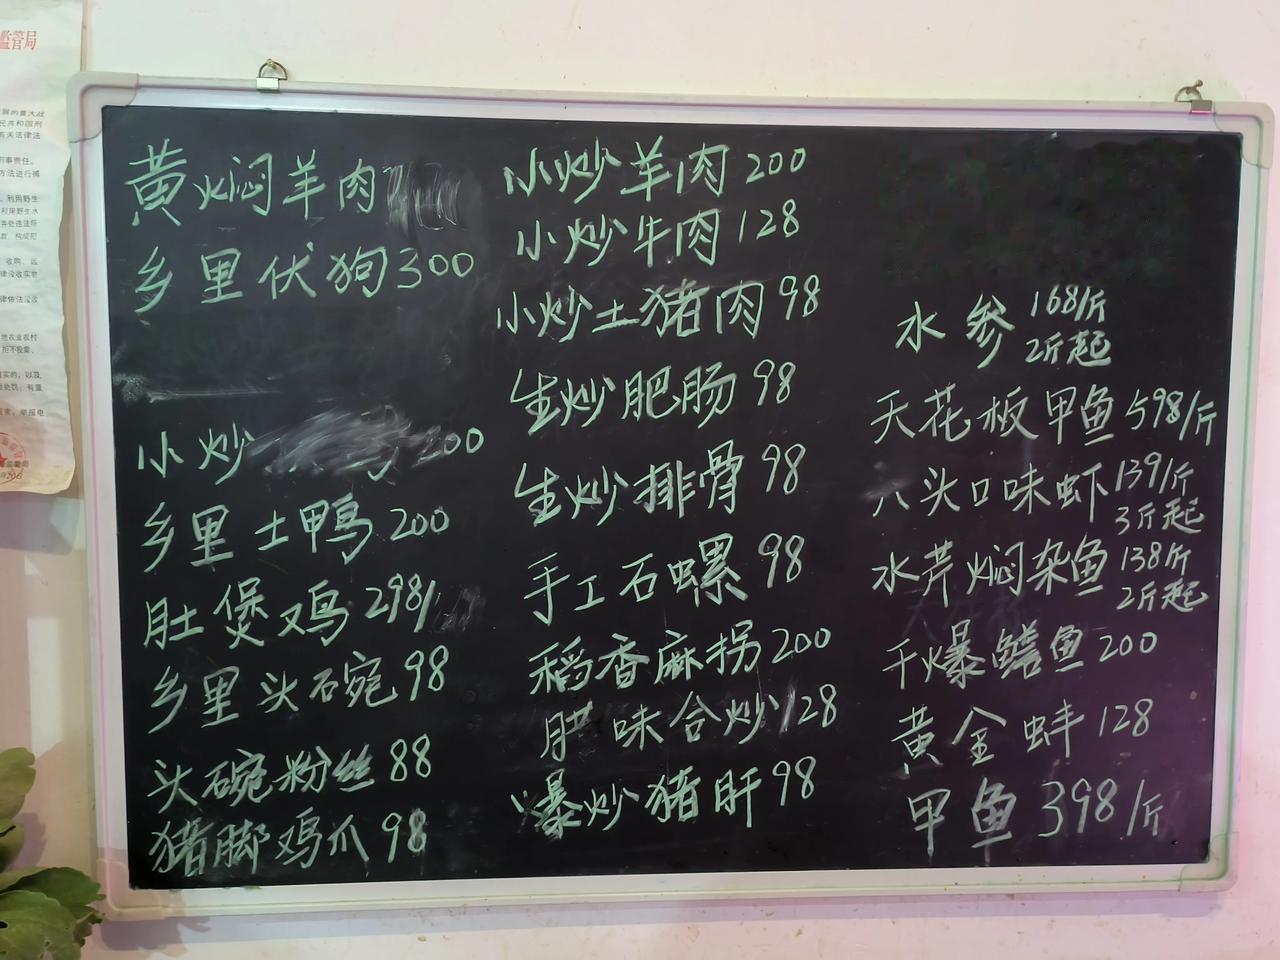 监管局
黄焖羊肉
乡里伏狗300
小炒 200
乡里土鸭200
肚煲鸡298/
乡里头碗98
头碗粉丝88
猪脚鸡爪98
小炒羊肉200
小炒牛肉128
小炒土猪肉98
生炒肥肠98
生炒排骨98
手工石螺98
稻香麻拐200
腊味合炒128
爆炒猪肝98
水参168/斤
2斤起
天花板甲鱼598/斤
八头口味虾139/斤
3斤起
水芹焖杂鱼138斤
2斤起
干爆鳝鱼200
黄金蚌128
甲鱼398/斤